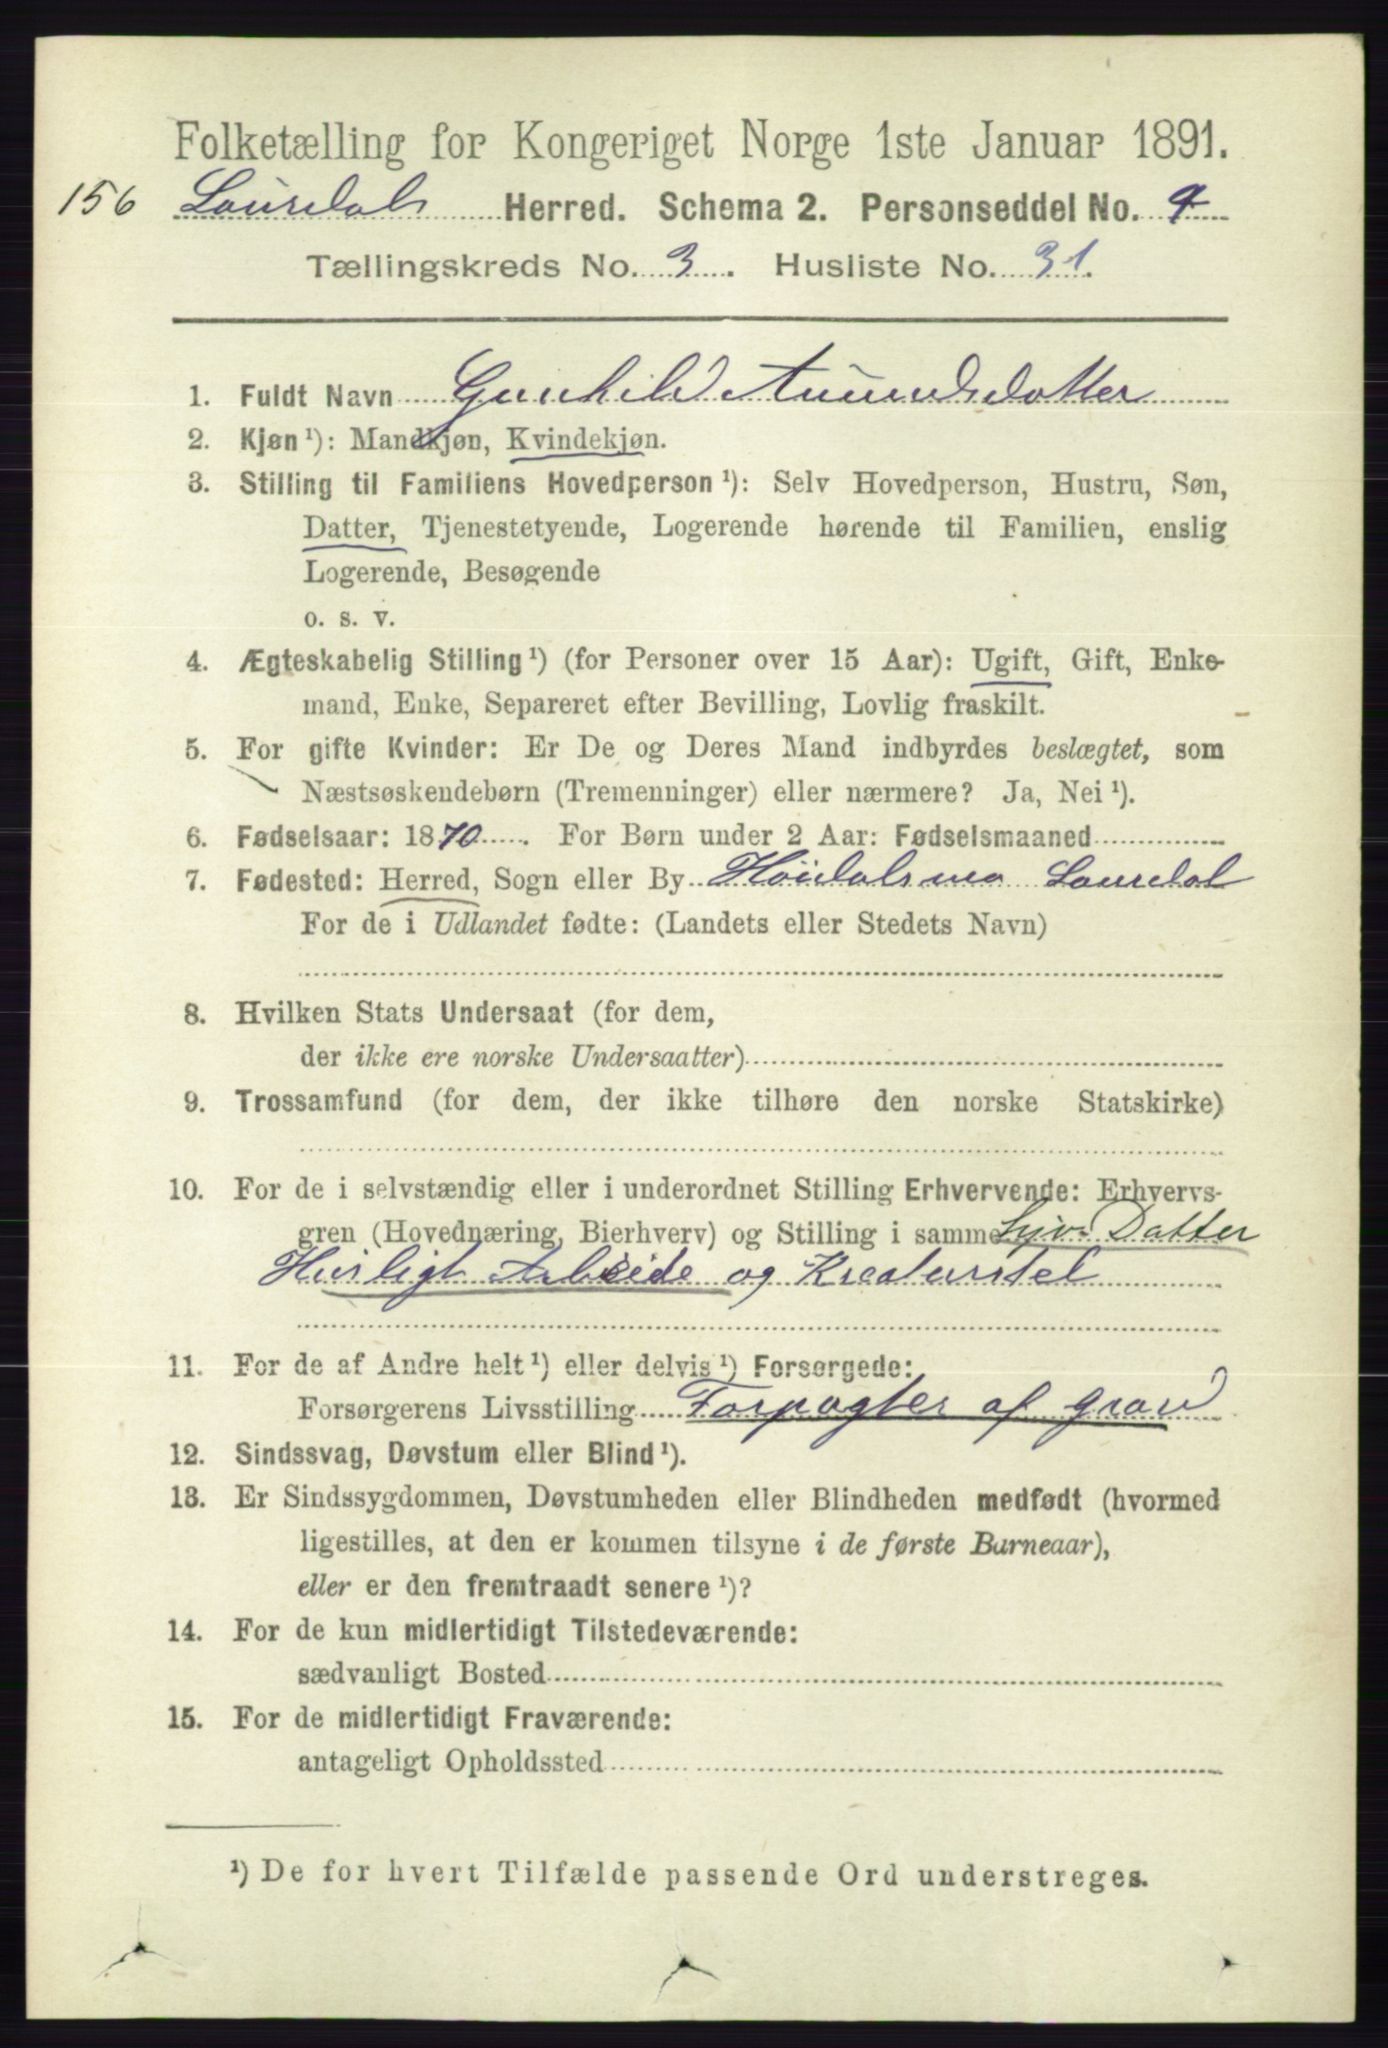 Folketælling for Kongeriget Norge 1ste Januar 1891.
156 Laurdals Herred. Schema 2. Personseddel No. 4
Tællingskreds No. 3. Husliste No. 31.
1. Fuldt Navn Gunhild Aumundsdatter
2. Kjøn ¹): Mandkjøn, Kvindekjøn.
3. Stilling til Familiens Hovedperson ¹): Selv Hovedperson, Hustru, Søn,
Datter, Tjenestetyende, Logerende hørende til Familien, enslig
Logerende, Besøgende
o. s. v.
4. Ægteskabelig Stilling ¹) (for Personer over 15 Aar): Ugift, Gift, Enke-
mand, Enke, Separeret efter Bevilling, Lovlig fraskilt.
5. For gifte Kvinder: Er De og Deres Mand indbyrdes beslægtet, som
Næstsøskendebørn (Tremenninger) eller nærmere? Ja, Nei ¹).
6. Fødselsaar: 1870. For Børn under 2 Aar: Fødselsmaaned
7. Fødested: Herred, Sogn eller By Høidalsmo Laurdal
For de i Udlandet fødte: (Landets eller Stedets Navn)
8. Hvilken Stats Undersaat (for dem,
der ikke ere norske Undersaatter)
9. Trossamfund (for dem, der ikke tilhøre den norske Statskirke)
10. For de i selvstændig eller i underordnet Stilling Erhvervende: Erhvervs-
gren (Hovednæring, Bierhverv) og Stilling i samme Datter
Husligt Arbeide og Kreaturstel
11. For de af Andre helt ¹) eller delvis ¹) Forsørgede:
Forsørgerens Livsstilling Forpagter af Graw
12. Sindssvag, Døvstum eller Blind ¹).
13. Er Sindssygdommen, Døvstumheden eller Blindheden medfødt (hvormed
ligestilles, at den er kommen tilsyne i de første Barneaar),
eller er den fremtraadt senere ¹)?
14. For de kun midlertidigt Tilstedeværende:
sædvanligt Bosted
15. For de midlertidigt Fraværende:
antageligt Opholdssted
¹) De for hvert Tilfælde passende Ord understreges.